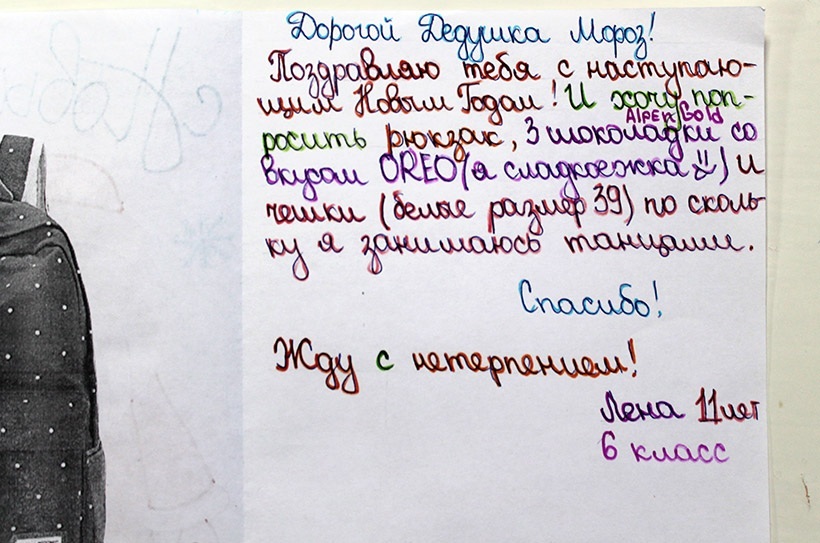 Дорогой Дедушка Мороз!
Поздравляю тебя с наступаю-
щим Новым Годам! И хочу поп-
росить рюкзак, 3 шоколадки Alpen Gold со
вкусам OREO (я сладкоежка) и
чешки (белые размер 39) по сколь-
ку я занимаюсь танцами.
Спасибо!
Жду с нетерпением!
Лена 11 лет
6 класс